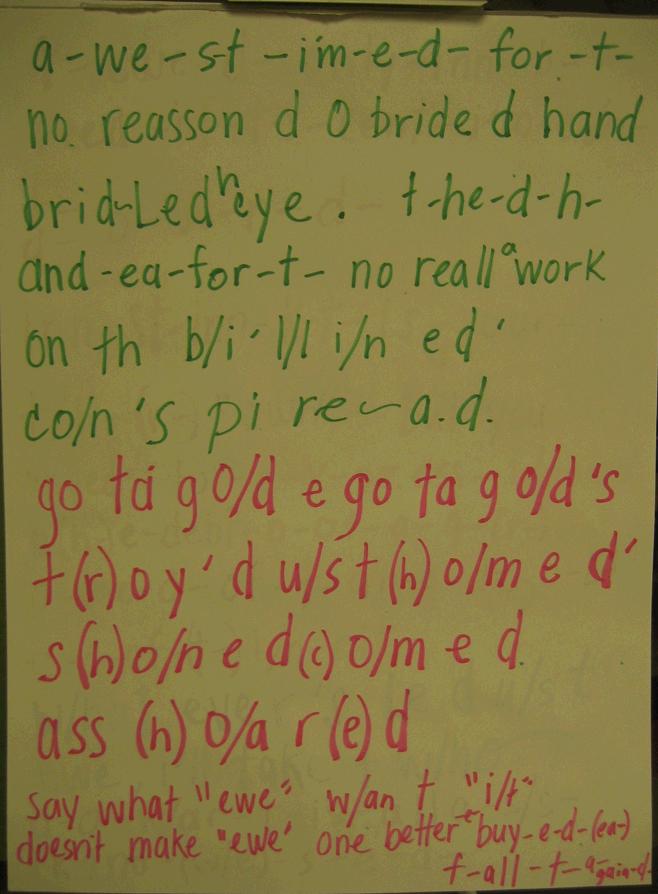 a-we-st-im-e-d- for-t-
no. reasson d O bride d hand
brid-Led heye. t-he-d-h-
and-ea-for-t- no reall a work
on th b/i'l/l i/n ed'
co/n 's pi re~a.d.
go ta g o/d e go ta g o/d's
t(r)oy'd u/s t(h)o/m e d'
s(h)o/n e d(c)o/m e d
ass (h) o/a r(e)d
say what "ewe" w/an t "i/t"
doesn't make "ewe" one better-e-buy-e-d-(ea-)
f-all-t-again-d-